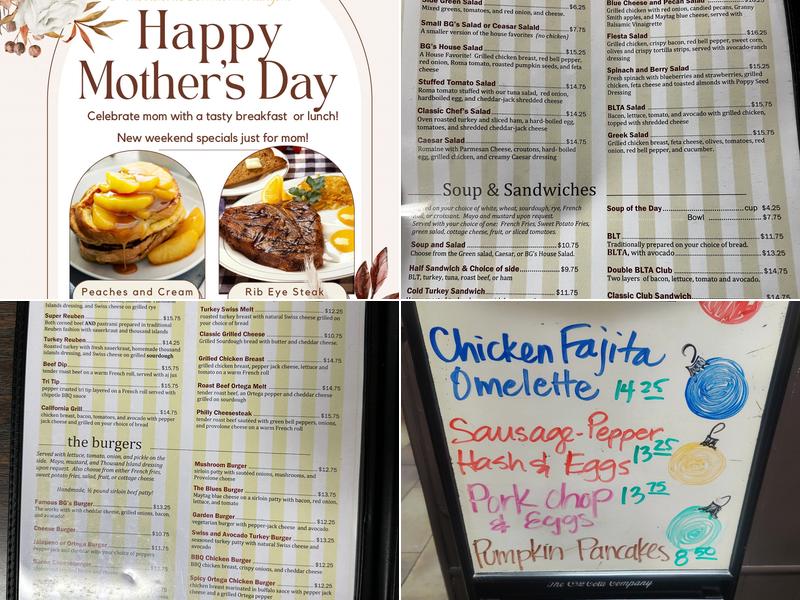 Happy
Mother's Day
Celebrate mom with a tasty breakfast or lunch!
New weekend specials just for mom!
Peaches and Cream
Rib Eye Steak
Side Green Salad $6.25
Mixed greens, tomatoes, and red onion, and cheese.
Small BG's Salad or Ceasar Salald $7.75
A smaller version of the house favorites (no chicken)
BG's House Salad $15.25
A House Favorite! Grilled chicken breast, red bell pepper,
red onion, Roma tomato, roasted pumpkin seeds, and feta
cheese
Stuffed Tomato Salad $14.75
Roma tomato stuffed with our tuna salad, red onion,
hardboiled egg, and cheddar-jack shredded cheese
Classic Chef's Salad $14.25
Oven roasted turkey and sliced ham, a hard-boiled egg,
tomatoes, and shredded cheddar-jack cheese
Caesar Salad $14.75
Romaine with Parmesan Cheese, croutons, hard- boiled
egg, grilled chicken, and creamy Caesar dressing
Blue Cheese and Pecan Salad
Grilled chicken with red onion, candied pecans, Granny
Smith apples, and Maytag blue cheese, served with
Balsamic Vinaigrette
Fiesta Salad $15.25
Grilled chicken, crispy bacon, red bell pepper, sweet corn,
olives, and crispy tortilla strips, served with avocado-ranch
dressing
Spinach and Berry Salad $15.25
Fresh spinach with blueberries and strawberries, grilled
chicken, feta cheese and toasted almonds with Poppy Seed
Dressing
BLTA Salad $15.75
Bacon, lettuce, tomato, and avocado with grilled chicken,
topped with shredded cheese
Greek Salad $15.75
Grilled chicken breast, feta cheese, olives, tomatoes, red
onion, red bell pepper, and cucumber.
Soup & Sandwiches
on your choice of white, wheat, sourdough, rye, French
roll, or croissant. Mayo and mustard upon request.
Served with your choice of one: French Fries, Sweet Potato Fries,
green salad, cottage cheese, fruit, or sliced tomatoes.
Soup and Salad $10.75
Choose from the Green salad, Caesar, or BG's House Salad.
Half Sandwich & Choice of side $9.75
BLT, turkey, tuna, roast beef, or ham
Cold Turkey Sandwich $11.75
Soup of the Day cup $4.25
Bowl $7.75
BLT $11.75
Traditionally prepared on your choice of bread.
BLTA, with avocado $13.25
Double BLTA Club $14.75
Two layers of bacon, lettuce, tomato and avocado.
Classic Club Sandwich $14.75
Islands dressing, and Swiss cheese on grilled rye
Super Reuben $15.75
Both corned beef AND pastrami prepared in traditional
Reuben fashion with sauerkraut and thousand islands
Turkey Reuben $14.25
Roasted turkey with fresh sauerkraut, homemade thousand
islands dressing, and Swiss cheese on grilled sourdough
Beef Dip $15.75
tender roast beef on a warm French roll, served with aj jus
Tri Tip $15.75
pepper crusted tri tip layered on a French roll served with
chipotle BBQ sauce
California Grill $14.75
chicken breast, bacon, tomatoes, and avocado with pepper
jack cheese and grilled on your choice of bread
Turkey Swiss Melt $12.25
roasted turkey breast with natural Swiss cheese grilled on
your choice of bread
Classic Grilled Cheese $10.75
Grilled Sourdough bread with butter and cheddar cheese.
Grilled Chicken Breast $14.75
grilled chicken breast, pepper jack cheese, lettuce and
tomato on a warm French roll
Roast Beef Ortega Melt $14.75
tender roast beef, an Ortega pepper and cheddar cheese
grilled on sourdough
Philly Cheesesteak $15.75
tender roast beef sautéed with green bell peppers, onions,
and provolone cheese on a warm French roll
the burgers
Served with lettuce, tomato, onion, and pickle on the
side. Mayo, mustard, and Thousand Island dressing
upon request. Also choose from either French fries,
sweet potato fries, salad, fruit, or cottage cheese
Handmade, ½ pound sirloin beef patty!
Famous BG's Burger $13.25
The works with with cheddar cheese, grilled onions, bacon,
and avocado!
Cheese Burger $10.75
Jalapeno or Ortega Burger $11.75
Pepper jack and cheddar with your choice of peppers
Mushroom Burger $12.75
sirloin patty with sautéed onions, mushrooms, and
Provelone cheese
The Blues Burger $13.75
Maytag blue cheese on a sirloin patty with bacon, red onion,
lettuce, and tomato
Garden Burger $12.25
vegetarian burger with pepper-jack cheese and avocado
Swiss and Avocado Turkey Burger $13.25
seasoned turkey patty with natural Swiss cheese and
avocado
BBQ Chicken Burger $12.25
BBQ chicken breast, crispy onions, and cheddar cheese
Spicy Ortega Chicken Burger $12.25
chicken breast marinated in buffalo sauce with pepper jack
cheese and a grilled Ortega pepper
Chicken Fajita
Omelette 14 25
Sausage-Pepper
Hash & Eggs 13 25
Pork chop 13 75
& Eggs
Pumpkin Pancakes 8 50
The Coca-Cola Company